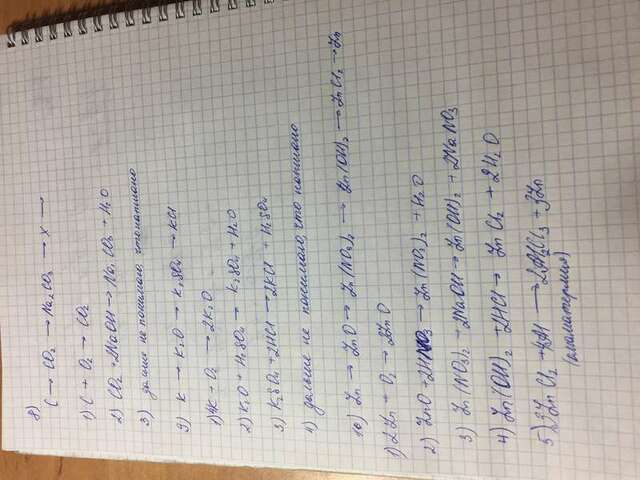 8)
C → CO2 → Na2CO3 → X →
1) C + O2 → CO2
2) CO2 + 2NaOH → Na2CO3 + H2O
3) дальше не понимаю, что написано
9) K → K2O → K2SO4 → KCl
1) 4K + O2 → 2K2O
2) K2O + H2SO4 → K2SO4 + H2O
3) K2SO4 + 2HCl → 2KCl + H2SO4
4) дальше не понимаю, что написано
10) Zn → ZnO → Zn(NO3)2 → Zn(OH)2 → ZnCl2 → Zn
1) 2Zn + O2 → 2ZnO
2) ZnO + 2HNO3 → Zn(NO3)2 + H2O
3) Zn(NO3)2 + 2NaOH → Zn(OH)2 + 2NaNO3
4) Zn(OH)2 + 2HCl → ZnCl2 + 2H2O
5) 3ZnCl2 + 2Al → 2AlCl3 + 3Zn
(алюматермия)